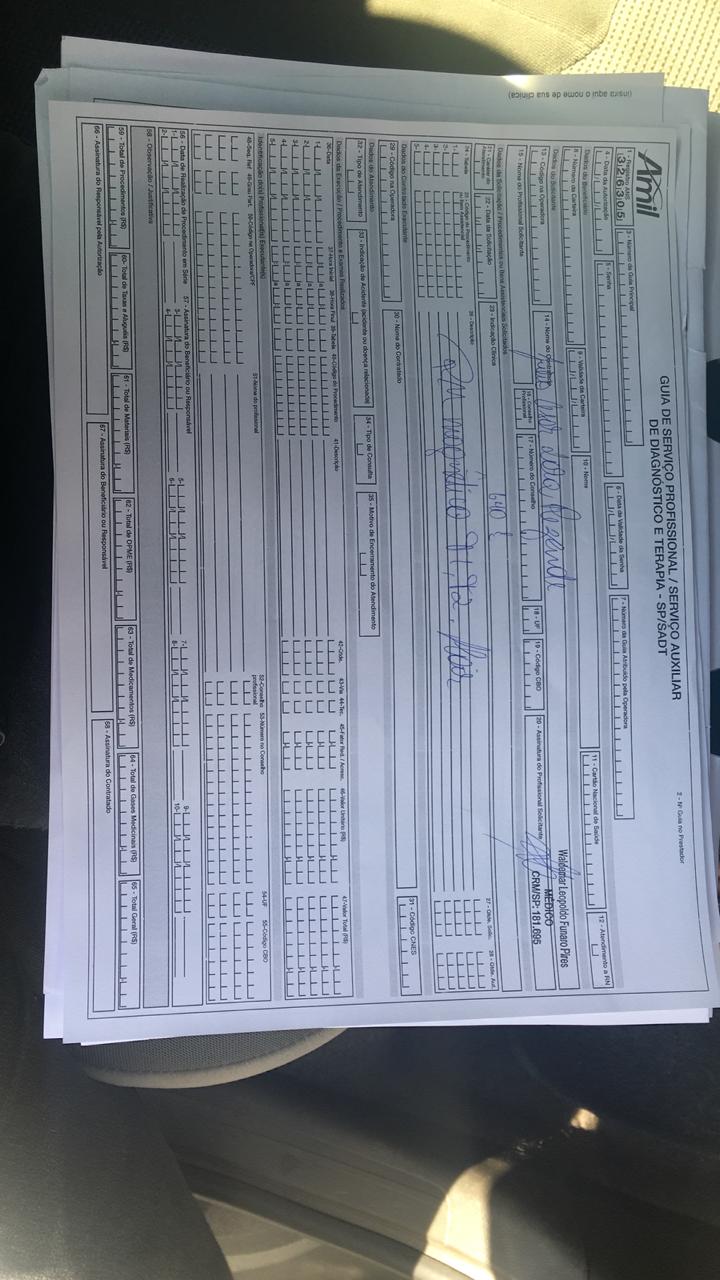 (insira o aqui o nome de sua clínica)
Amil
GUIA DE SERVIÇO PROFISSIONAL / SERVIÇO AUXILIAR
DE DIAGNÓSTICO E TERAPIA - SP/SADT
2 - Nº Guia no Prestador
1 - Registro ANS
326305
3 - Número da Guia Principal
4 - Data da Autorização
5 - Senha
6 - Data de Validade da Senha
7 - Número da Guia Atribuído pela Operadora
Dados do Beneficiário
8 - Número da Carteira
9 - Validade da Carteira
10 - Nome
11 - Cartão Nacional de Saúde
12 - Atendimento a RN
Dados do Solicitante
13 - Código na Operadora
14 - Nome do Contratado
Rezende
Waldemar Leopoldo Funaro Pires
MÉDICO
CRM/SP: 181.695
15 - Nome do Profissional Solicitante
16 - Conselho Profissional
17 - Número do Conselho
18 - UF
19 - Código CBO
20 - Assinatura do Profissional Solicitante
Dados da Solicitação / Procedimentos ou Itens Assistenciais Solicitados
21 - Caráter do
22 - Data da Solicitação
23 - Indicação Clínica
24 - Tabela
25 - Código do Procedimento
26 - Descrição
27 - Qtde. Solic.
28 - Qtde. Aut.
1-
2-
3-
4-
5-
Dados do Contratado Executante
29 - Código na Operadora
30 - Nome do Contratado
31 - Código CNES
Dados do Atendimento
32 - Tipo de Atendimento
33 - Indicação de Acidente (acidente ou doença relacionada)
34 - Tipo de Consulta
35 - Motivo de Encerramento do Atendimento
Dados da Execução / Procedimentos e Exames Realizados
36-Data
37-Hora Inicial
38-Hora Final
39-Tabela
40-Código do Procedimento
41-Descrição
42-Qtde.
43-Via
44-Tec.
45-Fator Red. / Acresc.
46-Valor Unitário (R$)
47-Valor Total (R$)
1-
2-
3-
4-
5-
Identificação do(s) Profissional(is) Executante(s)
48-Seq. Ref
49-Grau Part.
50-Código na Operadora/CPF
51-Nome do profissional
52-Conselho profissional
53-Número no Conselho
54-UF
55-Código CBO
56 - Data de Realização de Procedimento em Série
57 - Assinatura do Beneficiário ou Responsável
1-
3-
5-
7-
9-
2-
4-
6-
8-
10-
58 - Observação / Justificativa
59 - Total de Procedimentos (R$)
60- Total de Taxas e Aluguéis (R$)
61 - Total de Materiais (R$)
62 - Total de OPME (R$)
63 - Total de Medicamentos (R$)
64 - Total de Gases Medicinais (R$)
65 - Total Geral (R$)
66 - Assinatura do Responsável pela Autorização
67 - Assinatura do Beneficiário ou Responsável
68 - Assinatura do Contratado